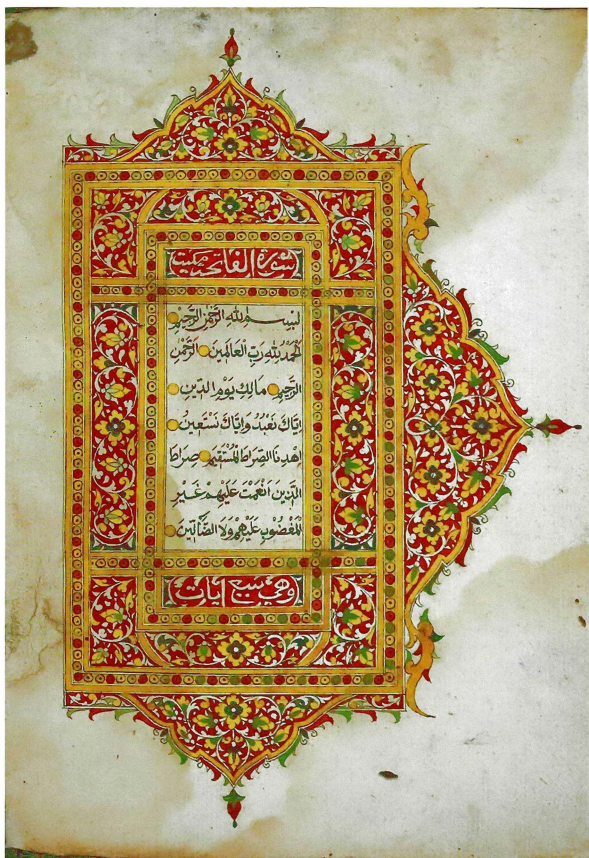 سورة الفاتحة مكية
بِسْمِ اللهِ الرَّحْمٰنِ الرَّحِيْمِ
اَلْحَمْدُ لِلّٰهِ رَبِّ الْعَالَمِيْنَ الرَّحْمٰنِ
الرَّحِيْمِ مَالِكِ يَوْمِ الدِّيْنِ
اِيَّاكَ نَعْبُدُ وَاِيَّاكَ نَسْتَعِيْنُ
اِهْدِنَا الصِّرَاطَ الْمُسْتَقِيْمَ صِرَاطَ
الَّذِيْنَ اَنْعَمْتَ عَلَيْهِمْ غَيْرِ
الْمَغْضُوْبِ عَلَيْهِمْ وَلَا الضَّآلِّيْنَ
وهي سبع آيات